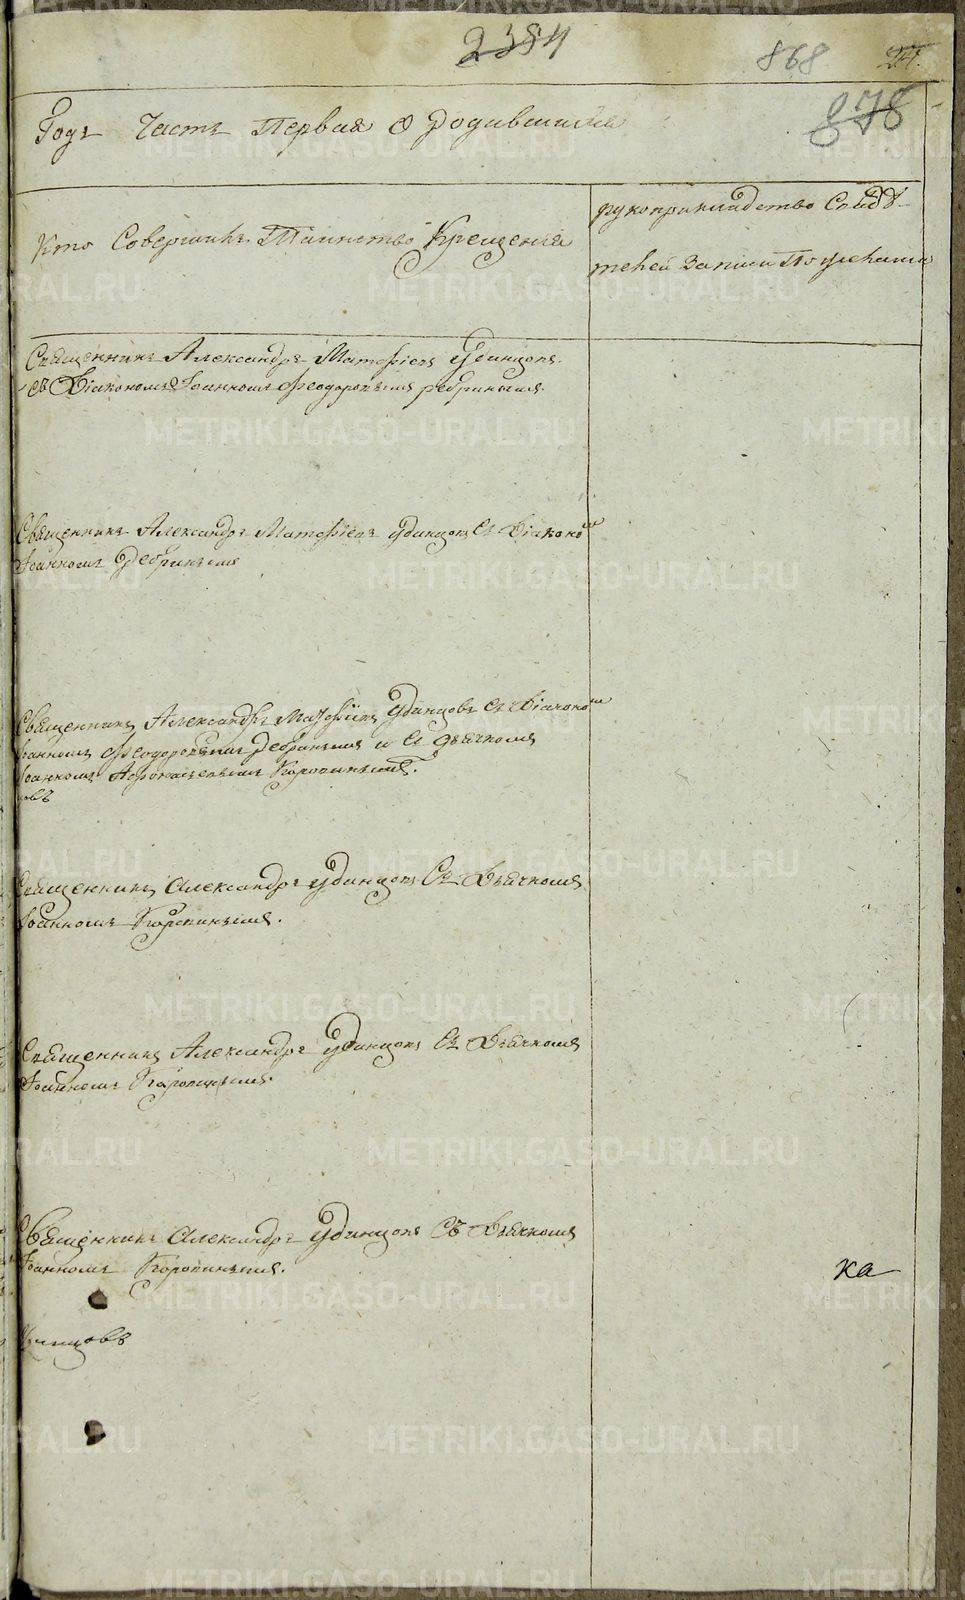 2384
868
24.
878
Годъ Часть Первая о родившихся
Кто Совершилъ Таинство Крещенія
рукоприкладство Свидѣ-
телей Записи По желанію
Священникъ Александръ Матфіевъ Удинцовъ
съ Діакономъ Іоанномъ Феодоровымъ Ребринымъ
Священникъ Александръ Матфіевъ Удинцовъ съ Діакономъ
Іоанномъ Ребринымъ
Священникъ Александръ Матфіевъ Удинцовъ съ Діакономъ
Іоанномъ Феодоровымъ Ребринымъ и съ дьячкомъ
Іоанномъ Афонасьевымъ Коровинымъ.
овъ
Священникъ Александръ Удинцовъ Съ Дьячкомъ
Іоанномъ Коровинымъ.
Священникъ Александръ Удинцовъ Съ Дьячкомъ
Іоанномъ Коровинымъ.
Священникъ Александръ Удинцовъ Съ Дьячкомъ
Іоанномъ Коровинымъ.
ка
METRIKI.GASO-URAL.RU